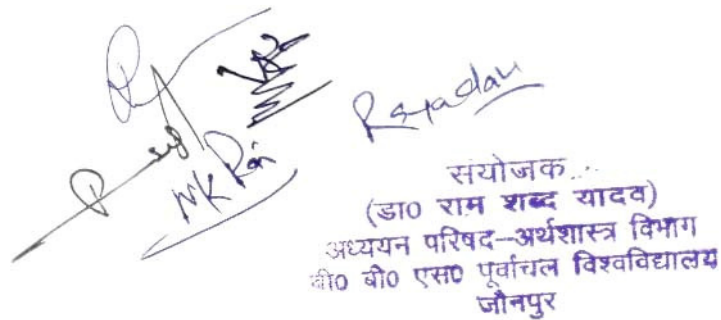 MK Rai
Rsyadav
संयोजक
(डा0 राम शब्द यादव)
अध्ययन परिषद–अर्थशास्त्र विभाग
बी0 बी0 एस0 पूर्वाचल विश्वविद्यालय
जौनपुर